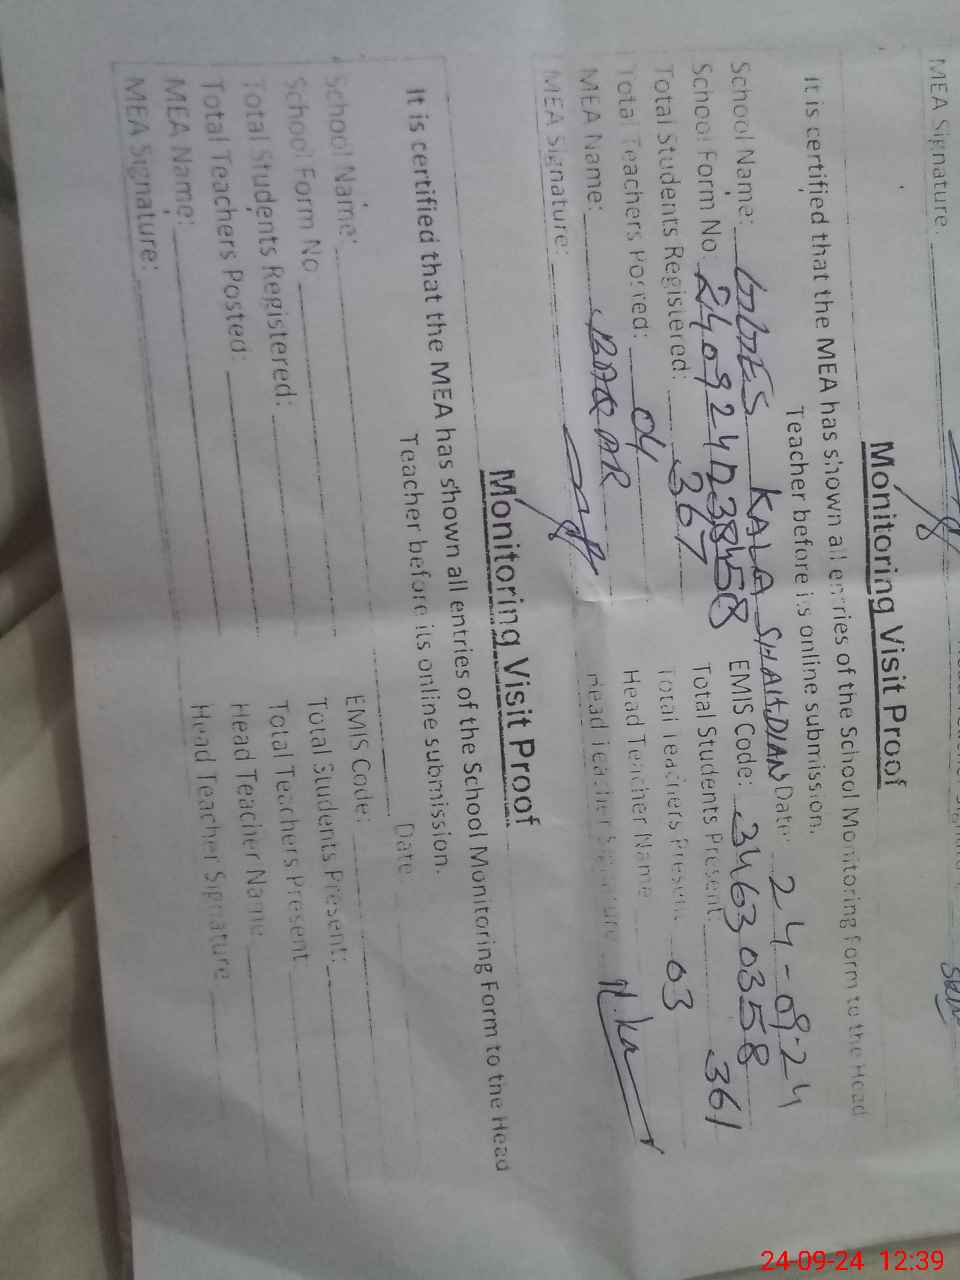 MEA Signature:
Monitoring Visit Proof
It is certified that the MEA has shown all entries of the School Monitoring Form to the Head
Teacher before its online submission.
Date: 24-09-24
School Name: KALA SHAHDIAN
EMIS Code: 34630358
School Form No.
Total Students Present: 361
Total Students Registered: 367
Total Teachers Present: 03
Total Teachers Posted: 04
Head Teacher Name
MEA Name: BAQAR
Head Teacher Signature
MEA Signature:
Monitoring Visit Proof
It is certified that the MEA has shown all entries of the School Monitoring Form to the Head
Teacher before its online submission.
Date:
School Name:
EMIS Code:
School Form No
Total Students Present:
Total Students Registered:
Total Teachers Present
Total Teachers Posted:
Head Teacher Name
MEA Name:
Head Teacher Signature
MEA Signature:
24-09-24 12:39